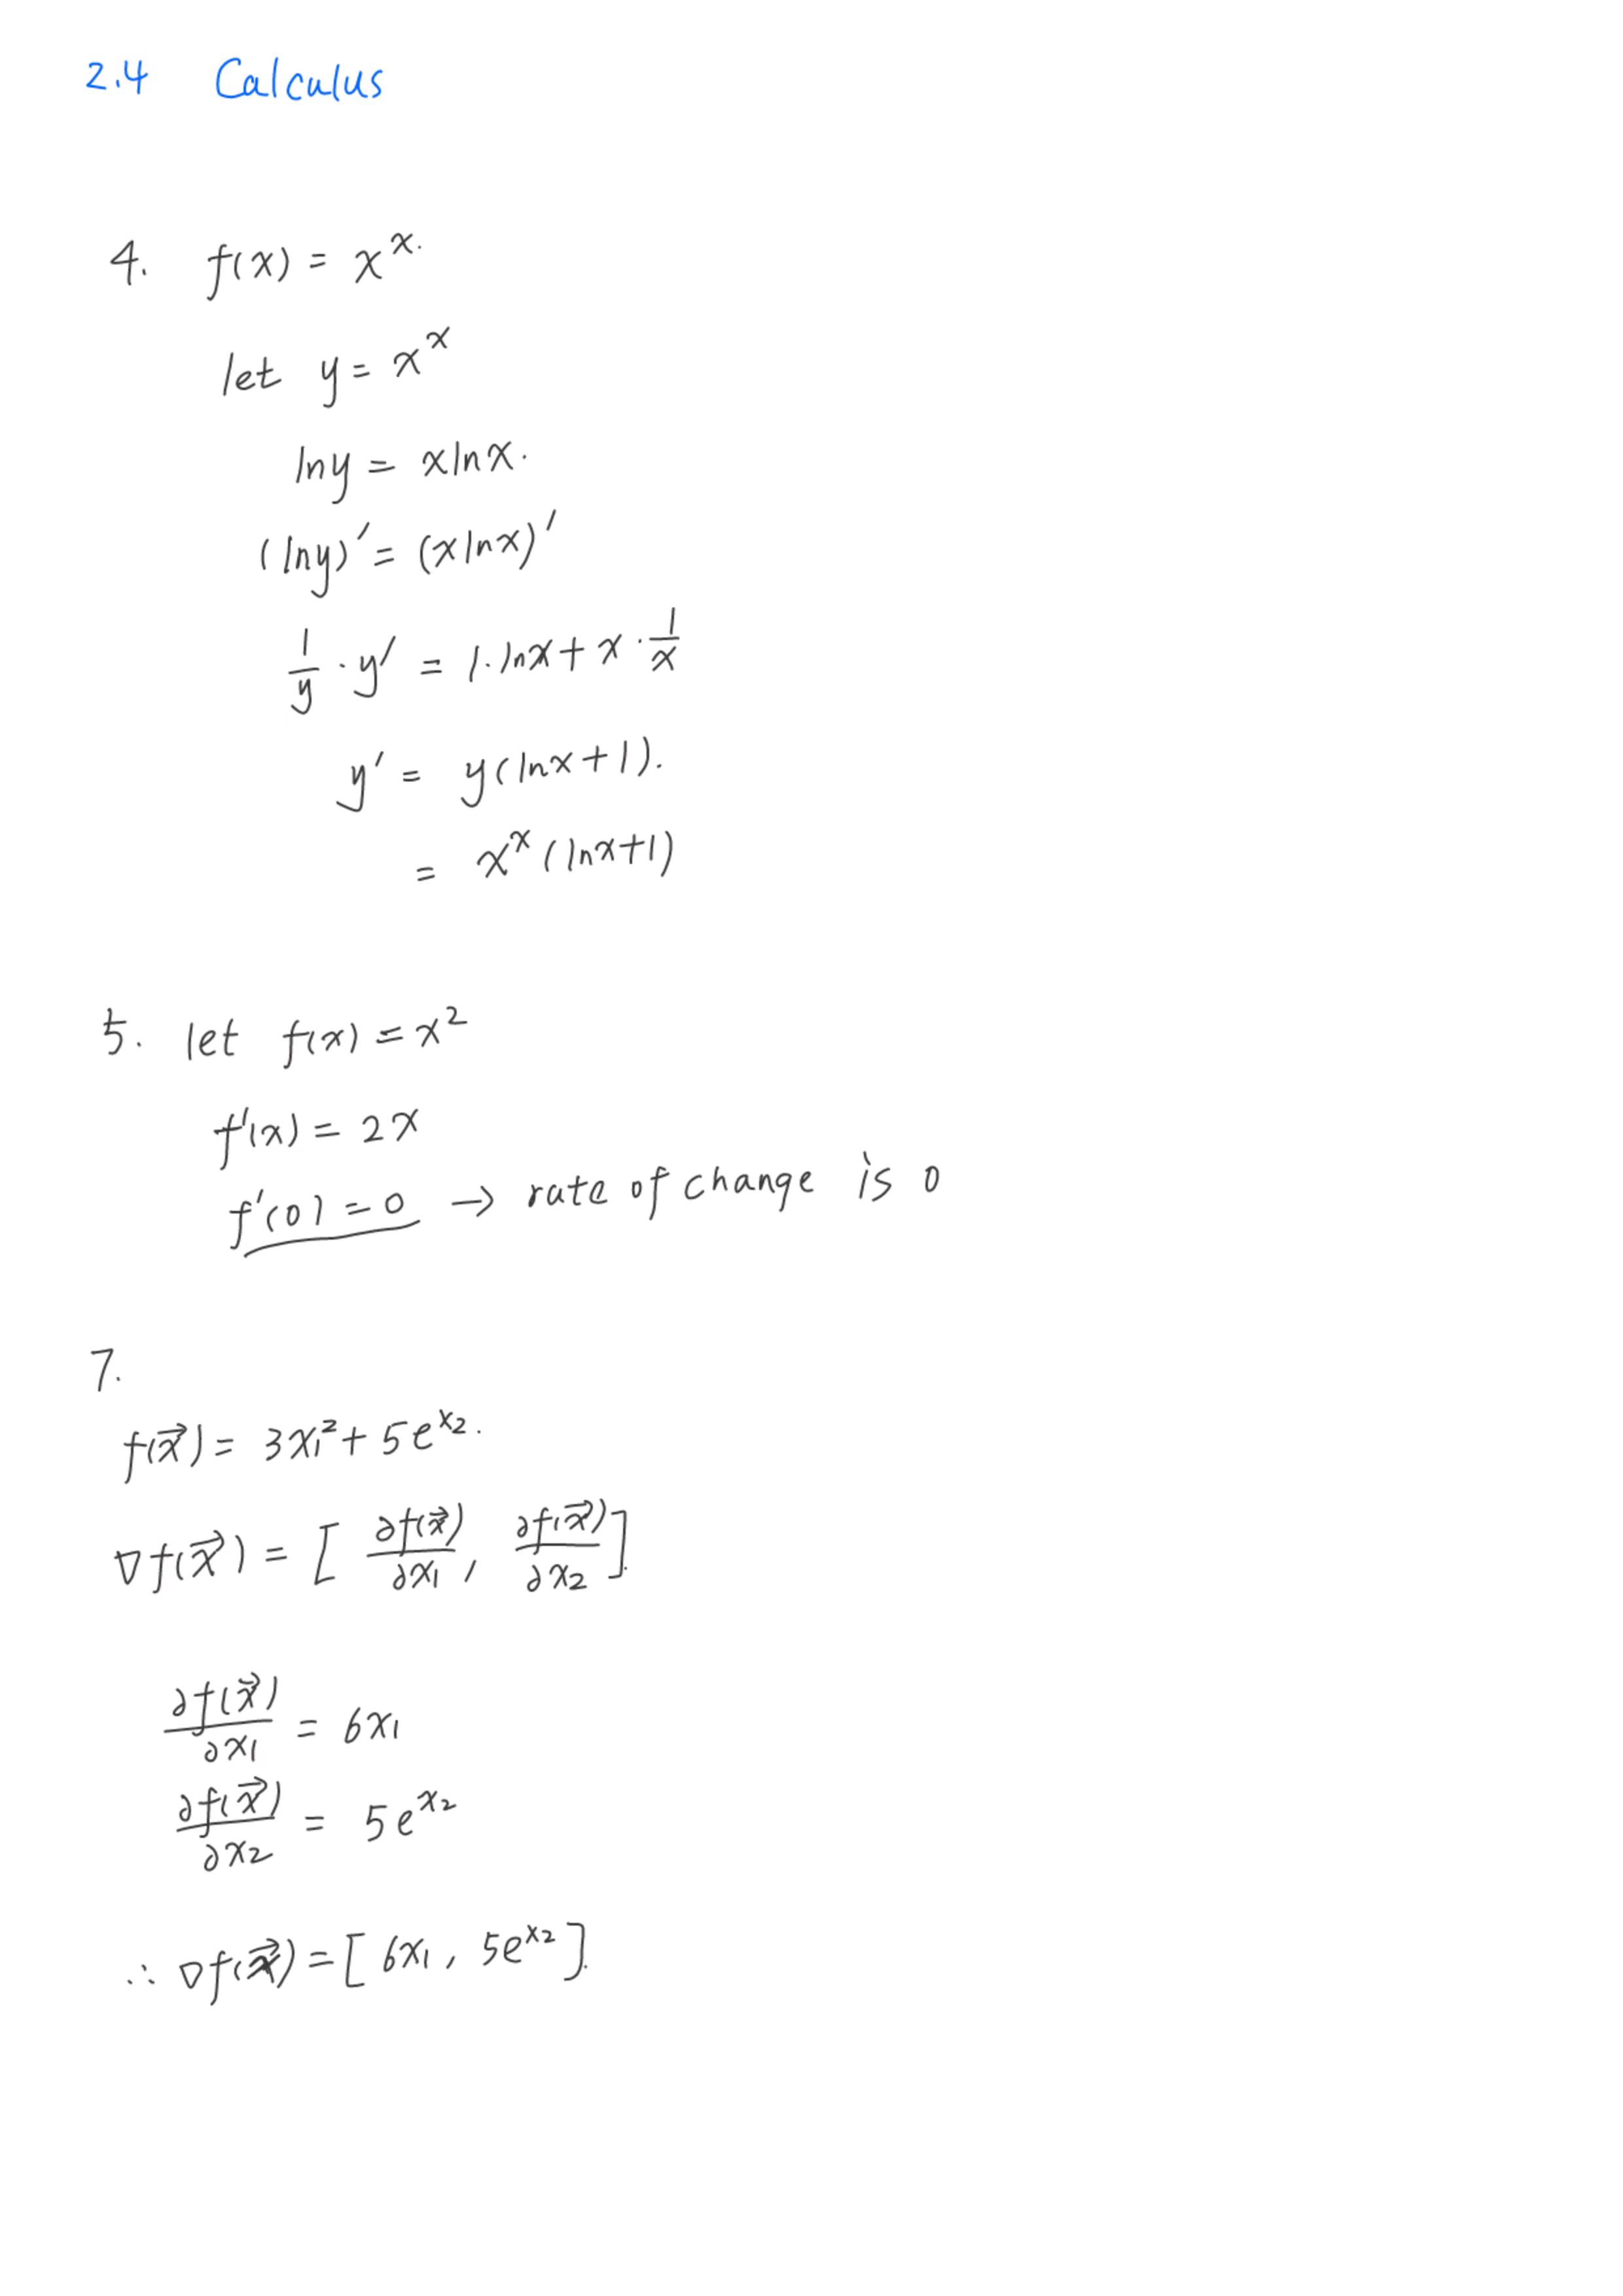 2.4 Calculus
4. f(x) = x^x.
let y = x^x
lny = xlnx.
(lny)' = (xlnx)'
1/y · y' = 1·lnx + x · 1/x
y' = y(lnx+1).
= x^x (lnx+1)
5. let f(x) = x²
f'(x) = 2x
f'(0) = 0 → rate of change is 0
7.
f(x⃗) = 3x₁² + 5e^x₂.
∇f(x⃗) = [ ∂f(x⃗)/∂x₁, ∂f(x⃗)/∂x₂ ].
∂f(x⃗)/∂x₁ = 6x₁
∂f(x⃗)/∂x₂ = 5e^x₂
∴ ∇f(x⃗) = [ 6x₁, 5e^x₂ ].